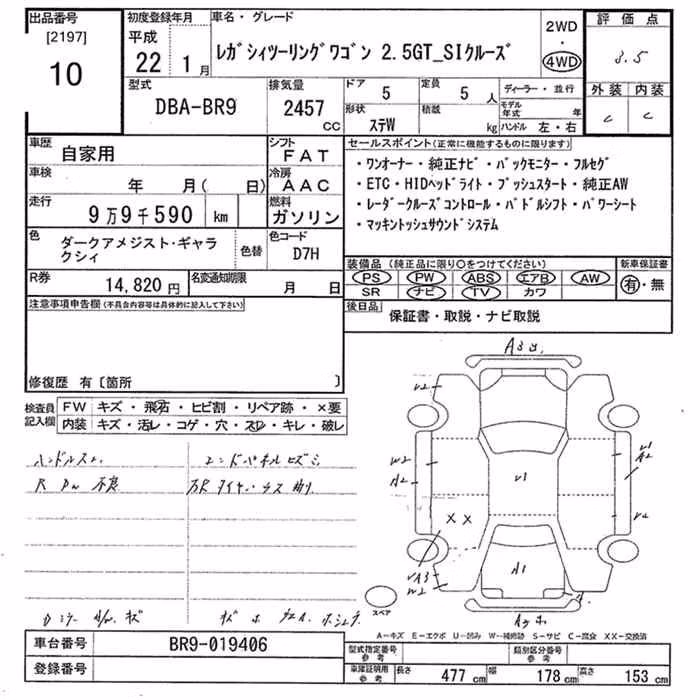 出品番号 初度登録年月 車名・グレード 2WD 評価点
[2197] 平成 レガシィツーリングワゴン 2.5GT_SIクルーズ ・ 3.5
10 22 1月 4WD
外装 内装
型式 排気量 ドア 5 定員 5人 ディーラー・並行 C C
DBA-BR9 2457 CC 形状 ステW 積載 kg モデル年式 年
ハンドル 左・右
車歴 自家用 シフト FAT セールスポイント(正常に機能するものに限ります)
車検 年 月( 日) 冷房 AAC ・ワンオーナー・純正ナビ・バックモニター・フルセグ
・ETC・HIDヘッドライト・プッシュスタート・純正AW
走行 9万9千590 km 燃料 ガソリン ・レーダークルーズコントロール・パドルシフト・パワーシート
・マッキントッシュサウンドシステム
色 ダークアメジスト・ギャラクシィ 色替 色コード D7H
装備品(純正品に限り○をつけてください) 新車保証書
R券 14,820円 名変通知期限 月 日 PS PW ABS エアB AW 有・無
SR ナビ TV カワ
注意事項申告欄(不具合内容等は具体的に記入して下さい) 後日品 保証書・取説・ナビ取説
修復歴 有〔箇所 〕
検査員記入欄 FW キズ・飛石・ヒビ割・リペア跡・×要
内装 キズ・汚レ・コゲ・穴・スレ・キレ・破レ
ハンドルスレ エンドパネルヒズミ
R PW 不良
W2
W2 A2 V1 V1 A2
X X
A3 W2 A1
スペア
A-キズ E-エクボ U-凹み W-補修跡 S-サビ C-腐食 XX-交換済
車台番号 BR9-019406 型式指定番号 参考 類別区分番号 参考
登録番号 車庫証明用 参考 長さ 477cm 幅 178cm 高さ 153cm